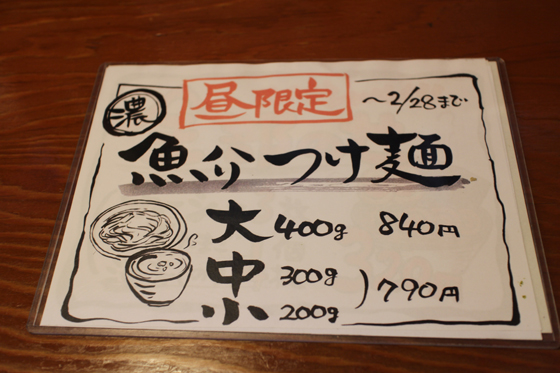 濃 昼限定 〜2/28まで
魚介つけ麺
大 400g 840円
中 300g
小 200g ) 790円